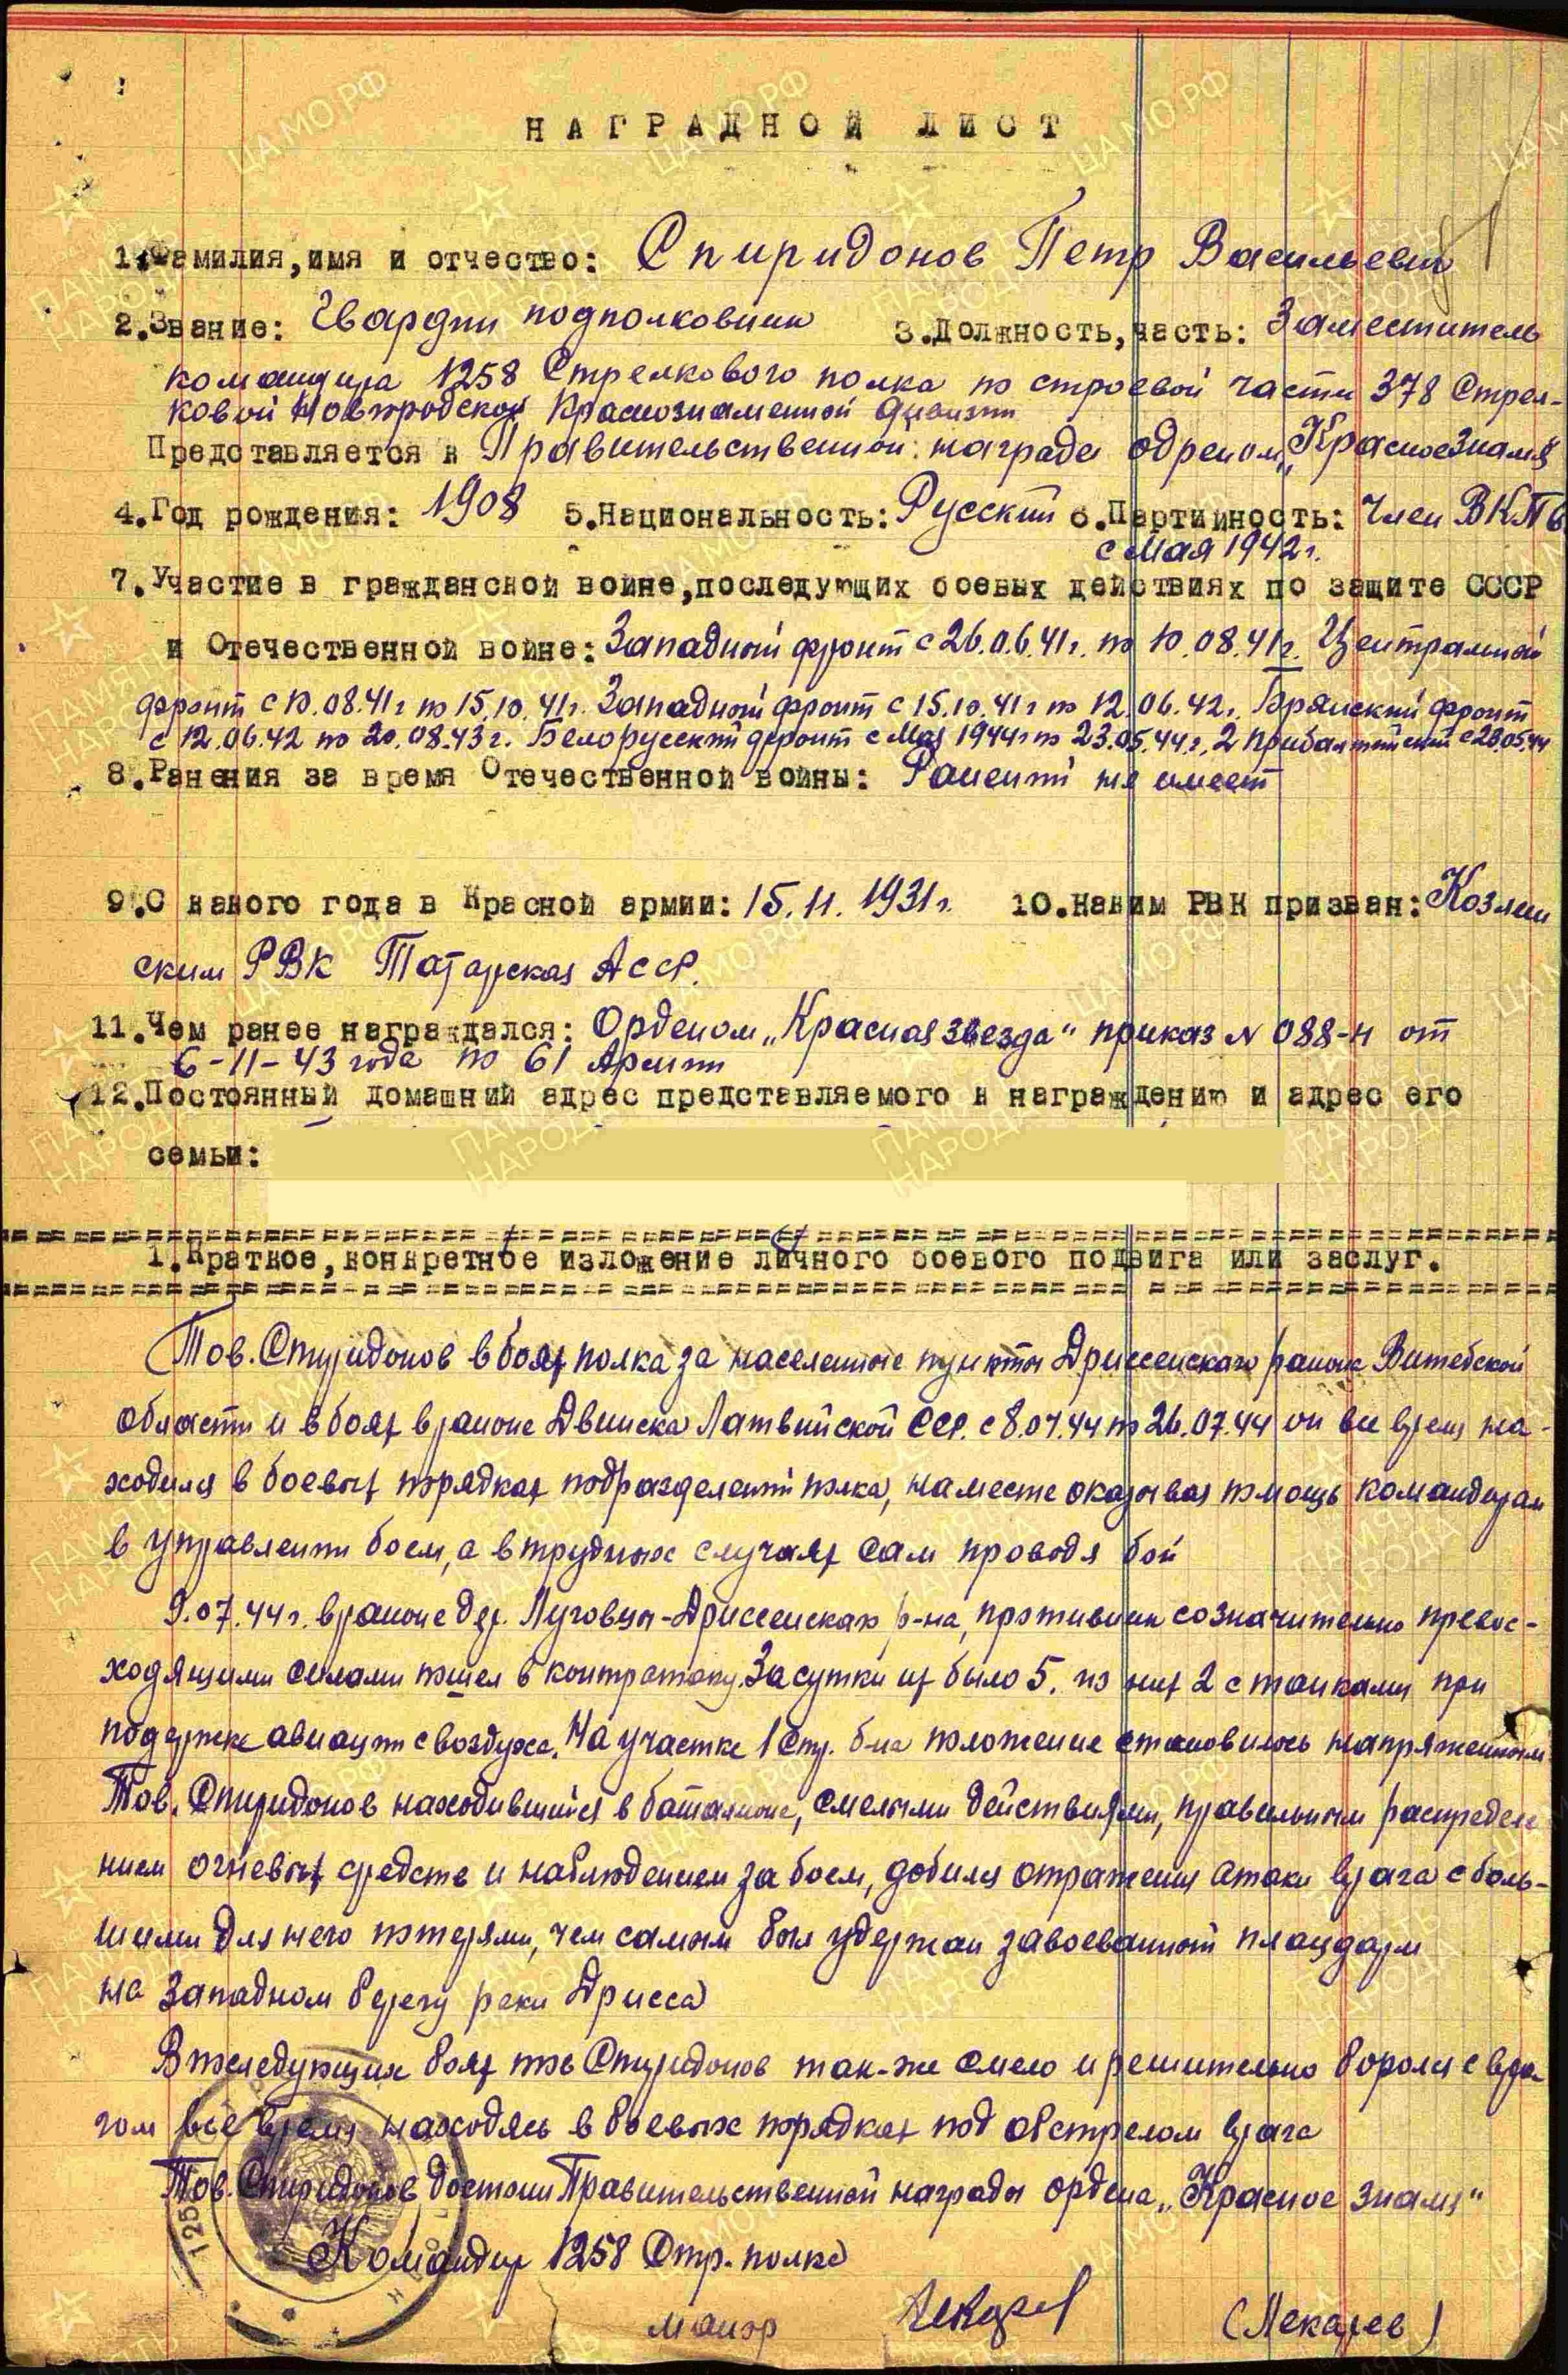 НАГРАДНОЙ ЛИСТ
1.Фамилия,имя и отчество: Спиридонов Петр Васильевич
2.Звание: Гвардии подполковник 3.Должность,часть: Заместитель
командира 1258 Стрелкового полка по строевой части 378 Стрел-
ковой Новгородской Краснознаменной дивизии
Представляется к Правительственной награде орденом „Красное Знамя"
4.Год рождения: 1908 5.Национальность: Русский 6.Партийность: Член ВКПб
с Мая 1942 г.
7.Участие в гражданской войне,последующих боевых действиях по защите СССР
и Отечественной войне: Западный фронт с 26.06.41г. по 10.08.41г. Центральный
фронт с 10.08.41г по 15.10.41г. Западный фронт с 15.10.41г по 12.06.42г. Брянский фронт
с 12.06.42 по 20.08.43г. Белорусский фронт с Мая 1944г по 23.05.44г, 2 Прибалтийский с 23.05.44
8.Ранения за время Отечественной войны: Ранений не имеет
9.С какого года в Красной армии: 15.11.1931г. 10.Каким РВК призван: Козлов
ским РВК Татарская АССР.
11.Чем ранее награждался: Орденом „Красная звезда" приказ № 088-н от
6-11-43 года по 61 Армии
12.Постоянный домашний адрес представляемого к награждению и адрес его
семьи:
1.Краткое,конкретное изложение личного боевого подвига или заслуг.
Тов. Спиридонов в боях полка за населенные пункты Дриссенского района Витебской
области и в боях в районе Двинска Латвийской ССР. с 8.07.44 по 26.07.44 он все время на-
ходился в боевых порядках подразделений полка, на месте оказывая помощь командирам
в управлении боем, а в трудных случаях сам проводя бой
9.07.44г. в районе дер. Луговцы-Дриссенскаго р-на, противник со значительно превос-
ходящими силами пошел в контратаку. За сутки их было 5. из них 2 с танками при
подержке авиации с воздуха. На участке 1 Стр. б-на положение становилось напряженным
Тов. Спиридонов находившийся в батальоне, смелыми действиями, правильным распределе
нием огневых средств и наблюдением за боем, добился отражения атаки врага с боль-
шими для него потерями, чем самым был удержан завоеванный плацдарм
на западном берегу реки Дрисса
В последующих боях тов Спиридонов так-же смело и решительно боролся с вра-
гом все время находясь в боевых порядках под обстрелом врага
Тов. Спиридонов достоин Правительственной награды ордена „Красное знамя"
Командир 1258 Стр. полка
майор (Лекарев)